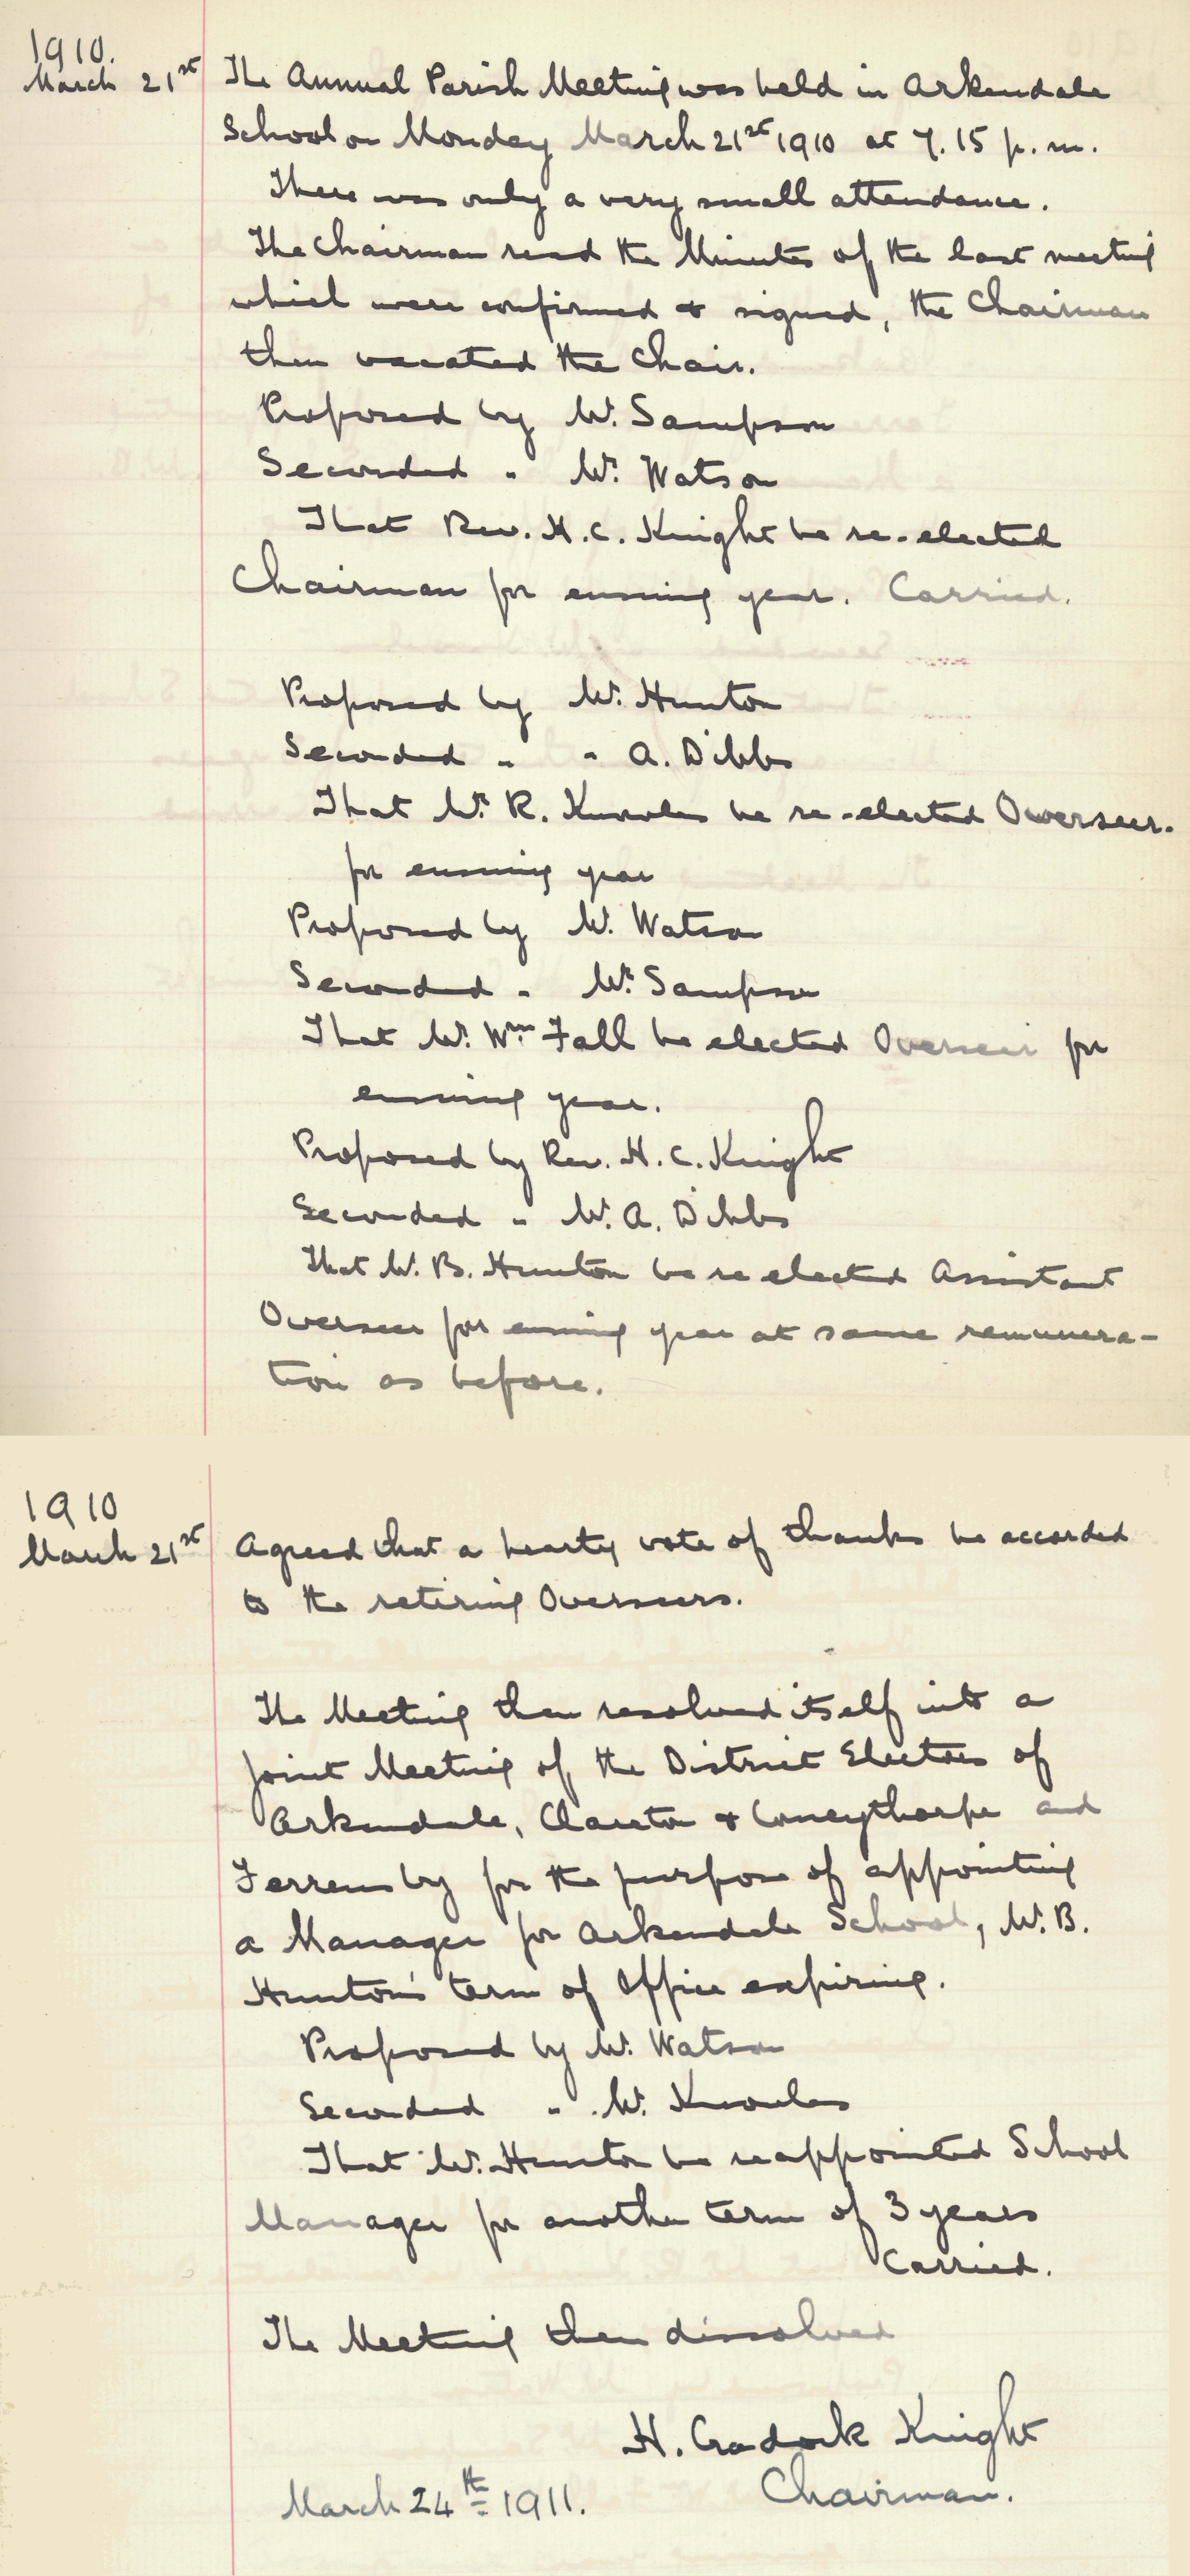 1910.
March 21st The Annual Parish Meeting was held in Arkendale
School on Monday March 21st 1910 at 7.15 p.m.
There was only a very small attendance.
The Chairman read the Minutes of the last meeting
which were confirmed & signed, the Chairman
then vacated the Chair.
Proposed by Mr. Sampson
Seconded " Mr. Watson
That Rev. H. C. Knight be re-elected
Chairman for ensuing year. Carried.
Proposed by Mr. Hunton
Seconded " " A. Dibbs
That Mr. R. Knowles be re-elected Overseer.
for ensuing year
Proposed by Mr. Watson
Seconded " Mr. Sampson
That Mr. Wm Fall be elected Overseer for
ensuing year.
Proposed by Rev. H. C. Knight
Seconded " Mr. A. Dibbs
That Mr. B. Hunton be re elected Assistant
Overseer for ensuing year at same remunera-
tion as before.
1910
March 21st Agreed that a hearty vote of thanks be accorded
to the retiring Overseers.
The Meeting then resolved itself into a
Joint Meeting of the District Electors of
Arkendale, Clareton & Coneythorpe and
Ferrensby for the purpose of appointing
a Manager for Arkendale School, Mr. B.
Hunton's term of Office expiring.
Proposed by Mr. Watson
Seconded " Mr. Knowles
That Mr. Hunton be reappointed School
Manager for another term of 3 years
Carried.
The Meeting then dissolved
H. Cradock Knight
March 24th 1911. Chairman.